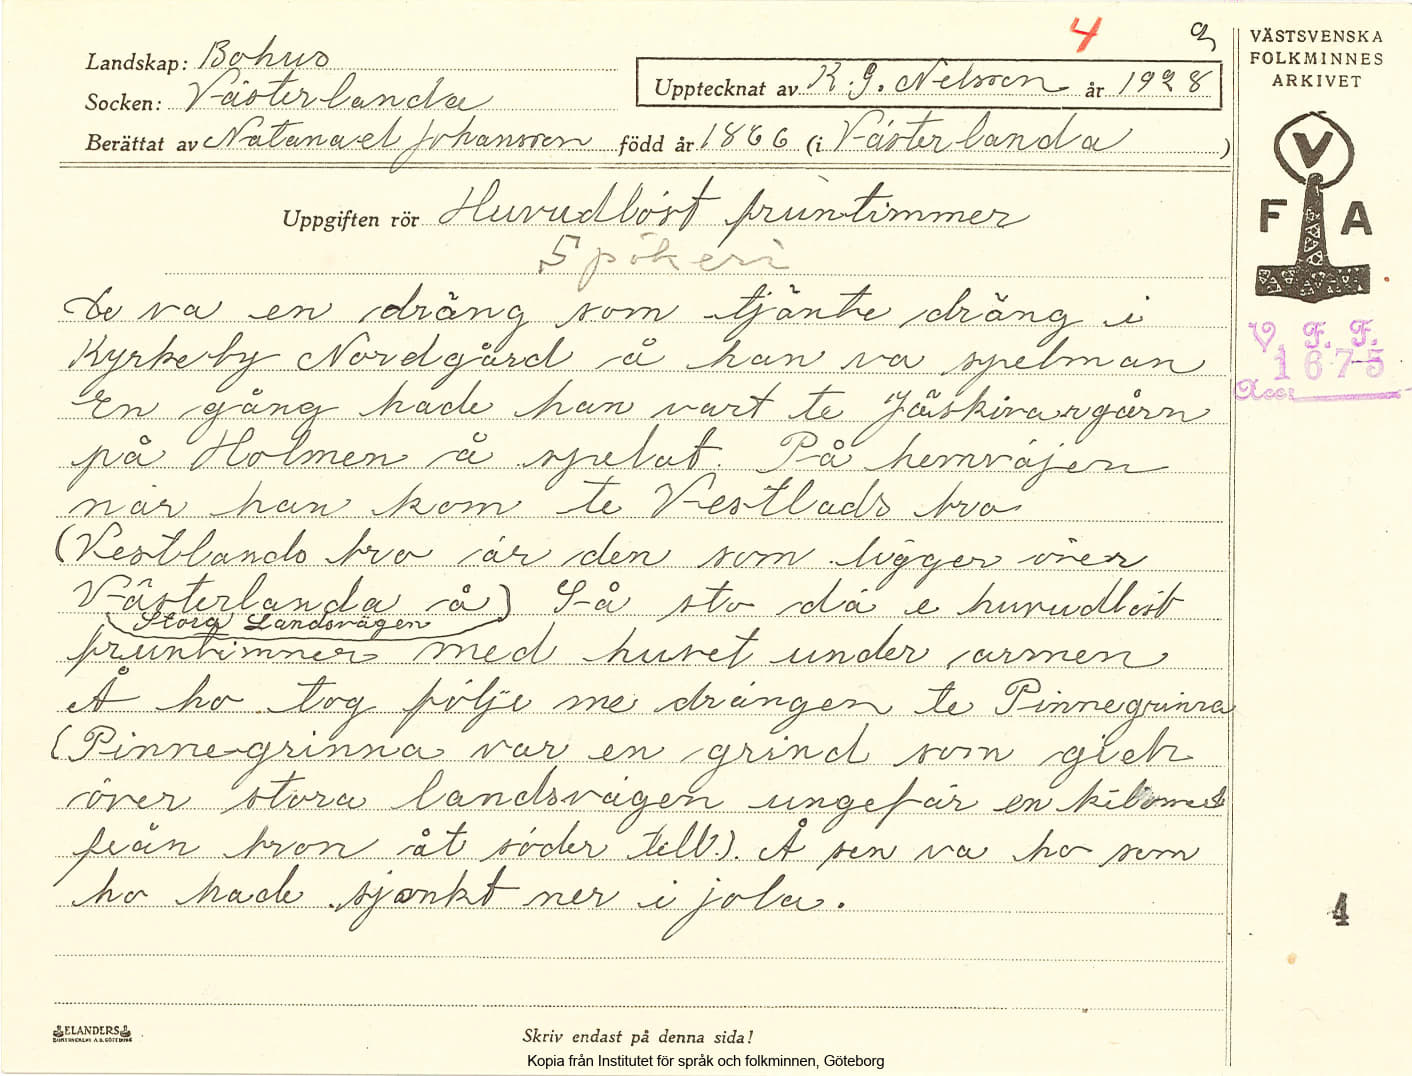 4
Landskap: Bohus
Socken: Västerlanda
Upptecknat av K. G. Nelsson år 1928
Berättat av Natanael Johansson född år 1866 (i Västerlanda )
Uppgiften rör Huvudlöst fruntimmer
Spökeri
De va en dräng som tjänte dräng i
Kyrkeby Nordgård å han va spelman
En gång hade han vart te Jäskivargårn
på Holmen å spelat. På hemväjen
när han kom te Vestlads bro
(Vestlands bro är den som ligger över
Västerlanda å) Så sto dä e huvudlöst
Stora Landsvägen
fruntimmer med huvet under armen
Å ho tog följe me drängen te Pinnegrinna
(Pinnegrinna var en grind som gick
över stora landsvägen ungefär en kilomet
från bron åt söder till). Å sen va ho som
ho hade sjonkt ner i jola.
ELANDERS
BOKTRYCKERI A.B. GÖTEBORG
Skriv endast på denna sida!
Kopia från Institutet för språk och folkminnen, Göteborg
VÄSTSVENSKA
FOLKMINNES
ARKIVET
V
F A
V. F. F.
1675
Acc
4